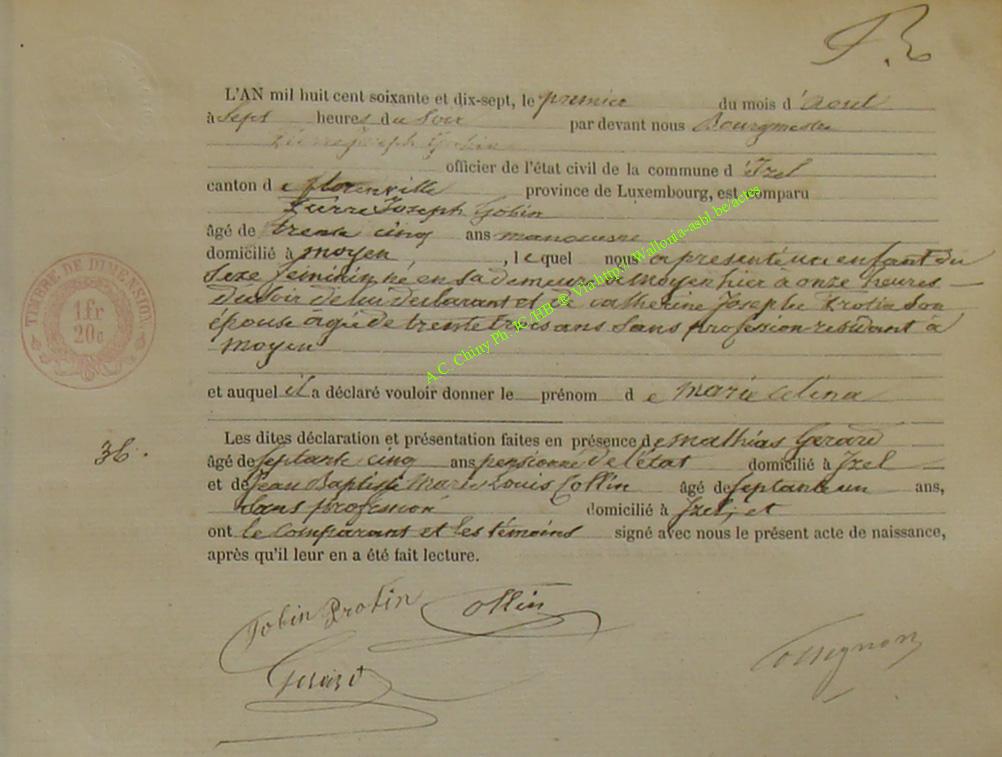 L'AN mil huit cent soixante et dix-sept, le premier du mois d'Aout
à Sept heures du Soir par devant nous Bourgmestre
Pierre Joseph Gobin
officier de l'état civil de la commune d'Izel
canton de florenville province de Luxembourg, est comparu
Pierre Joseph Gobin
âgé de trente cinq ans manoeuvre
domicilié à moyen, lequel nous a présenté un enfant du
Sexe féminin né en sa demeure à Moyen hier à onze heures
du soir de lui déclarant et de catherine Josephe Protin Son
épouse âgée de trente trois ans Sans profession résidant à
moyen
et auquel il a déclaré vouloir donner le prénom de marie celina
Les dites déclaration et présentation faites en présence de Mathias Gerard
36.
âgé de Septante cinq ans pensionné de l'état domicilié à Izel
et de Jean Baptiste Marie Louis Collin âgé de Septante un ans,
Sans profession domicilié à Izel, et
ont le comparant et les témoins signé avec nous le présent acte de naissance,
après qu'il leur en a été fait lecture.
Gobin Protin Collin
Gerard
TIMBRE DE DIMENSION.
1 fr
20c
A.C. Chiny Ph. JC/HB ® Via http://Wallonia-asbl.be/actes